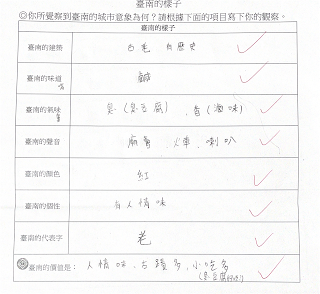 臺南的樣子
◎你所覺察到臺南的城市意象為何?請根據下面的項目寫下你的觀察。
臺南的樣子
臺南的建築 古老 有歷史
臺南的味道 鹹
臺南的氣味 臭(臭豆腐)、香(滷味)
臺南的聲音 廟會、火車、喇叭
臺南的顏色 紅
臺南的個性 有人情味
臺南的代表字 老
◎臺南的價值是: 人情味、古蹟多、小吃多